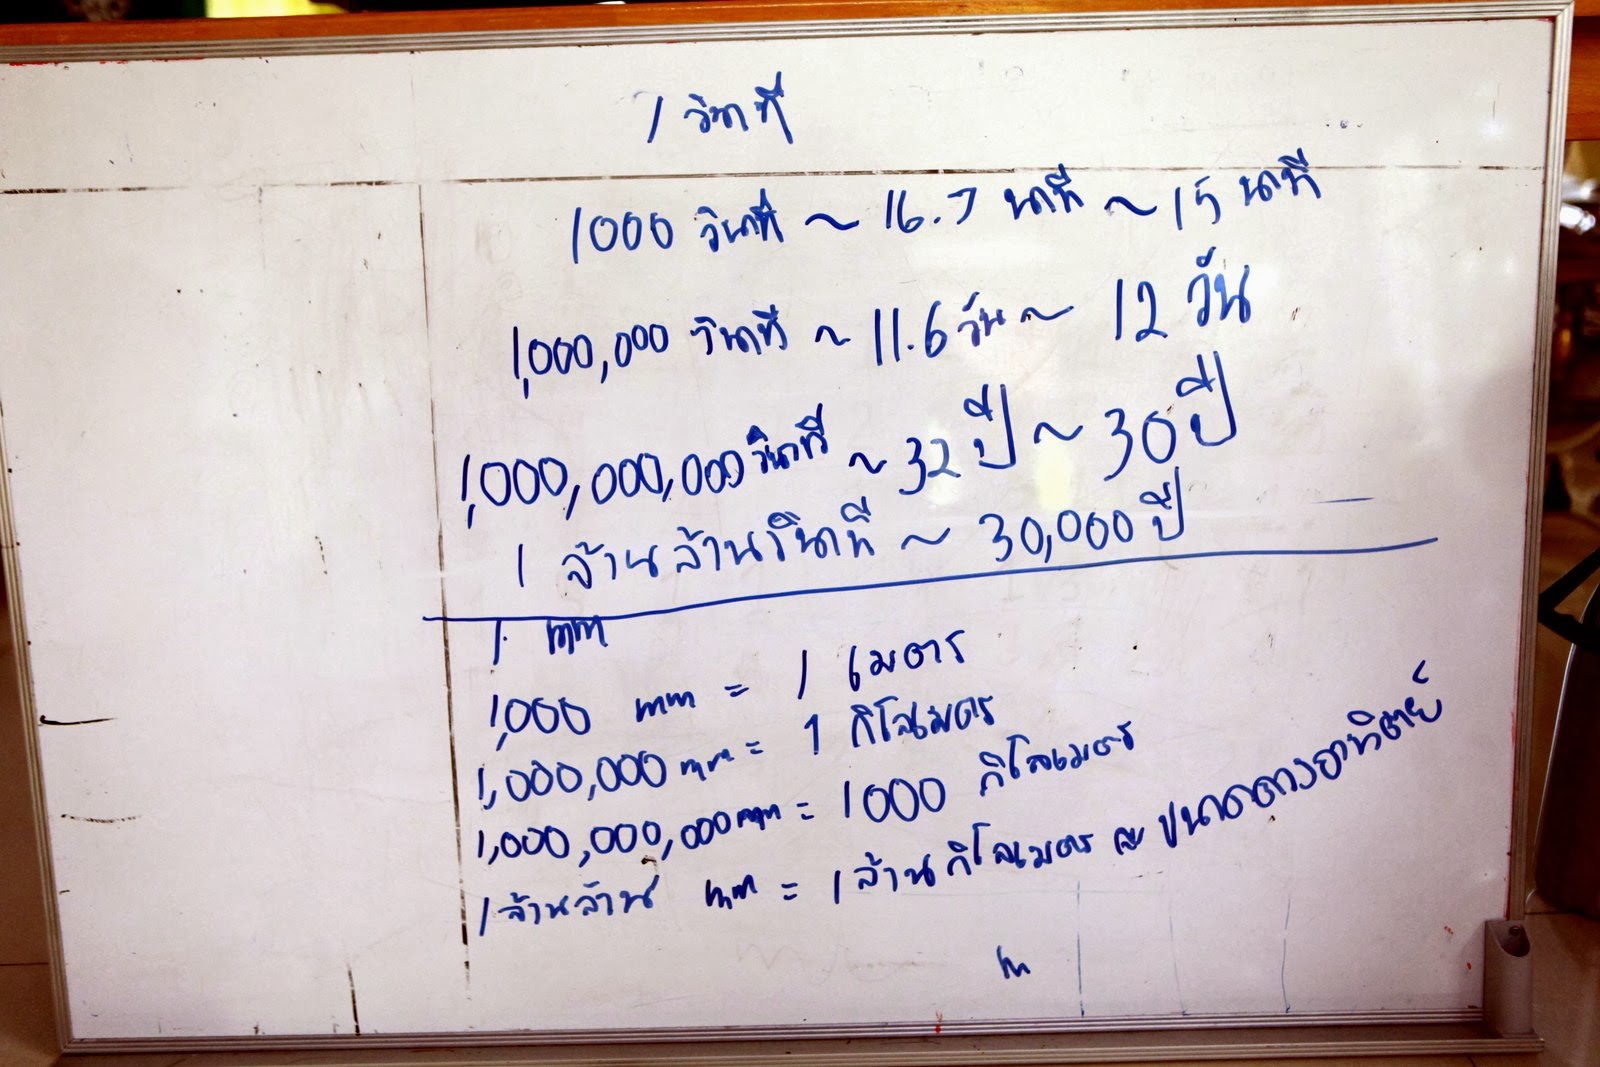 1 วินาที
1000 วินาที ~ 16.7 นาที ~ 15 นาที
1,000,000 วินาที ~ 11.6 วัน ~ 12 วัน
1,000,000,000 วินาที ~ 32 ปี ~ 30 ปี
1 ล้านล้านวินาที ~ 30,000 ปี
1 mm
1,000 mm = 1 เมตร
1,000,000 mm = 1 กิโลเมตร
1,000,000,000 mm = 1000 กิโลเมตร
1 ล้านล้าน mm = 1 ล้านกิโลเมตร ขนาดดวงอาทิตย์
m